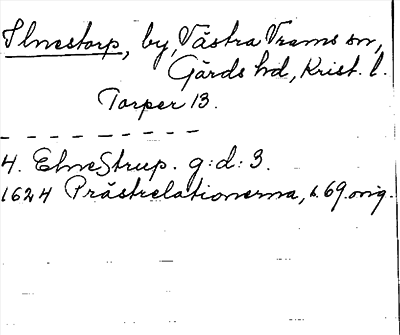 Ilnestorp, by, Västra Vrams sn,
Gärds hd, Krist. l.
Torper 13.
4. Elnestrup. g:d: 3.
1624 Prästrelationerna, s. 69. orig.